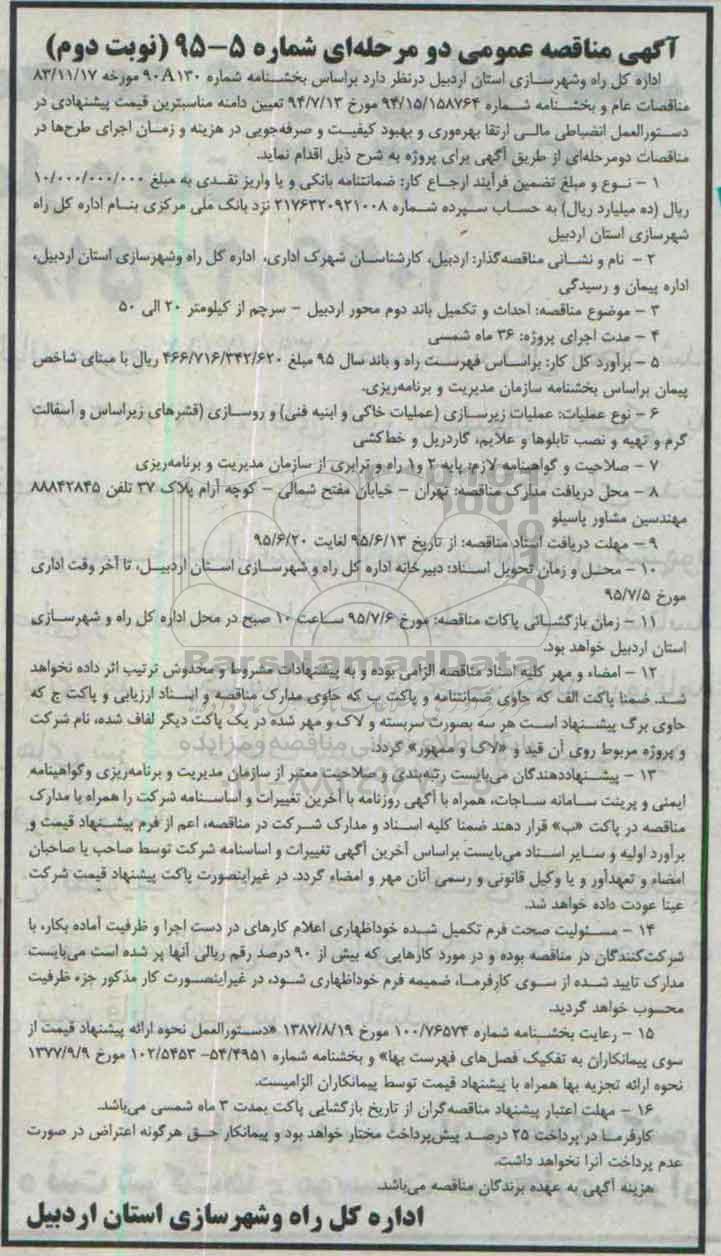 آگهی مناقصه عمومی دو مرحله‌ای شماره ۵-۹۵ (نوبت دوم)
اداره کل راه وشهرسازی استان اردبیل درنظر دارد براساس بخشنامه شماره ۹۰A۱۳۰ مورخه ۸۳/۱۱/۱۷
مناقصات عام و بخشنامه شماره ۹۴/۱۵/۱۵۸۷۶۴ مورخ ۹۴/۷/۱۳ تعیین دامنه مناسبترین قیمت پیشنهادی در
دستورالعمل انضباطی مالی ارتقا بهره‌وری و بهبود کیفیت و صرفه‌جویی در هزینه و زمان اجرای طرح‌ها در
مناقصات دومرحله‌ای از طریق آگهی برای پروژه به شرح ذیل اقدام نماید.
۱ – نوع و مبلغ تضمین فرآیند ارجاع کار: ضمانتنامه بانکی و یا واریز نقدی به مبلغ ۱۰/۰۰۰/۰۰۰/۰۰۰
ریال (ده میلیارد ریال) به حساب سپرده شماره ۲۱۷۶۳۲۰۹۲۱۰۰۸ نزد بانک ملی مرکزی بنام اداره کل راه
شهرسازی استان اردبیل
۲ – نام و نشانی مناقصه‌گذار: اردبیل، کارشناسان شهرک اداری، اداره کل راه وشهرسازی استان اردبیل،
اداره پیمان و رسیدگی
۳ – موضوع مناقصه: احداث و تکمیل باند دوم محور اردبیل – سرچم از کیلومتر ۲۰ الی ۵۰
۴ – مدت اجرای پروژه: ۳۶ ماه شمسی
۵ – برآورد کل کار: براساس فهرست راه و باند سال ۹۵ مبلغ ۴۶۶/۷۱۶/۳۴۲/۶۲۰ ریال با مبنای شاخص
پیمان براساس بخشنامه سازمان مدیریت و برنامه‌ریزی.
۶ – نوع عملیات: عملیات زیرسازی (عملیات خاکی و ابنیه فنی) و روسازی (قشرهای زیراساس و آسفالت
گرم و تهیه و نصب تابلوها و علایم، گاردریل و خط‌کشی
۷ – صلاحیت و گواهینامه لازم: پایه ۲ و۱ راه و ترابری از سازمان مدیریت و برنامه‌ریزی
۸ – محل دریافت مدارک مناقصه: تهران – خیابان مفتح شمالی – کوچه آرام پلاک ۳۷ تلفن ۸۸۸۴۲۸۴۵
مهندسین مشاور پاسیلو
۹ – مهلت دریافت اسناد مناقصه: از تاریخ ۹۵/۶/۱۳ لغایت ۹۵/۶/۲۰
۱۰ – محل و زمان تحویل اسناد: دبیرخانه اداره کل راه و شهرسازی استان اردبیل، تا آخر وقت اداری
مورخ ۹۵/۷/۵
۱۱ – زمان بازگشائی پاکات مناقصه: مورخ ۹۵/۷/۶ ساعت ۱۰ صبح در محل اداره کل راه و شهرسازی
استان اردبیل خواهد بود.
۱۲ – امضاء و مهر کلیه اسناد مناقصه الزامی بوده و به پیشنهادات مشروط و مخدوش ترتیب اثر داده نخواهد
شد. ضمنا پاکت الف که حاوی ضمانتنامه و پاکت ب که حاوی مدارک مناقصه و اسناد ارزیابی و پاکت ج که
حاوی برگ پیشنهاد است هر سه بصورت سربسته و لاک و مهر شده در یک پاکت دیگر لفاف شده، نام شرکت
و پروژه مربوط روی آن قید و «لاک و ممهور» گردد.
۱۳ – پیشنهاددهندگان می‌بایست رتبه‌بندی و صلاحیت معتبر از سازمان مدیریت و برنامه‌ریزی وگواهینامه
ایمنی و پرینت سامانه ساجات، همراه با آگهی روزنامه با آخرین تغییرات و اساسنامه شرکت را همراه با مدارک
مناقصه در پاکت «ب» قرار دهند ضمنا کلیه اسناد و مدارک شرکت در مناقصه، اعم از فرم پیشنهاد قیمت و
برآورد اولیه و سایر اسناد می‌بایست براساس آخرین آگهی تغییرات و اساسنامه شرکت توسط صاحب یا صاحبان
امضاء و تعهدآور و یا وکیل قانونی و رسمی آنان مهر و امضاء گردد. در غیراینصورت پاکت پیشنهاد قیمت شرکت
عینا عودت داده خواهد شد.
۱۴ – مسئولیت صحت فرم تکمیل شده خوداظهاری اعلام کارهای در دست اجرا و ظرفیت آماده بکار، با
شرکت‌کنندگان در مناقصه بوده و در مورد کارهایی که بیش از ۹۰ درصد رقم ریالی آنها پر شده است می‌بایست
مدارک تایید شده از سوی کارفرما، ضمیمه فرم خوداظهاری شود، در غیراینصورت کار مذکور جزء ظرفیت
محسوب خواهد گردید.
۱۵ – رعایت بخشنامه شماره ۱۰۰/۷۶۵۷۴ مورخ ۱۳۸۷/۸/۱۹ «دستورالعمل نحوه ارائه پیشنهاد قیمت از
سوی پیمانکاران به تفکیک فصل‌های فهرست بها» و بخشنامه شماره ۵۴/۴۹۵۱- ۱۰۲/۵۴۵۳ مورخ ۱۳۷۷/۹/۹
نحوه ارائه تجزیه بها همراه با پیشنهاد قیمت توسط پیمانکاران الزامیست.
۱۶ – مهلت اعتبار پیشنهاد مناقصه‌گران از تاریخ بازگشایی پاکت بمدت ۳ ماه شمسی می‌باشد.
کارفرما در پرداخت ۲۵ درصد پیش‌پرداخت مختار خواهد بود و پیمانکار حق هرگونه اعتراض در صورت
عدم پرداخت آنرا نخواهد داشت.
هزینه آگهی به عهده برندگان مناقصه می‌باشد.
اداره کل راه وشهرسازی استان اردبیل
ParsNamadData